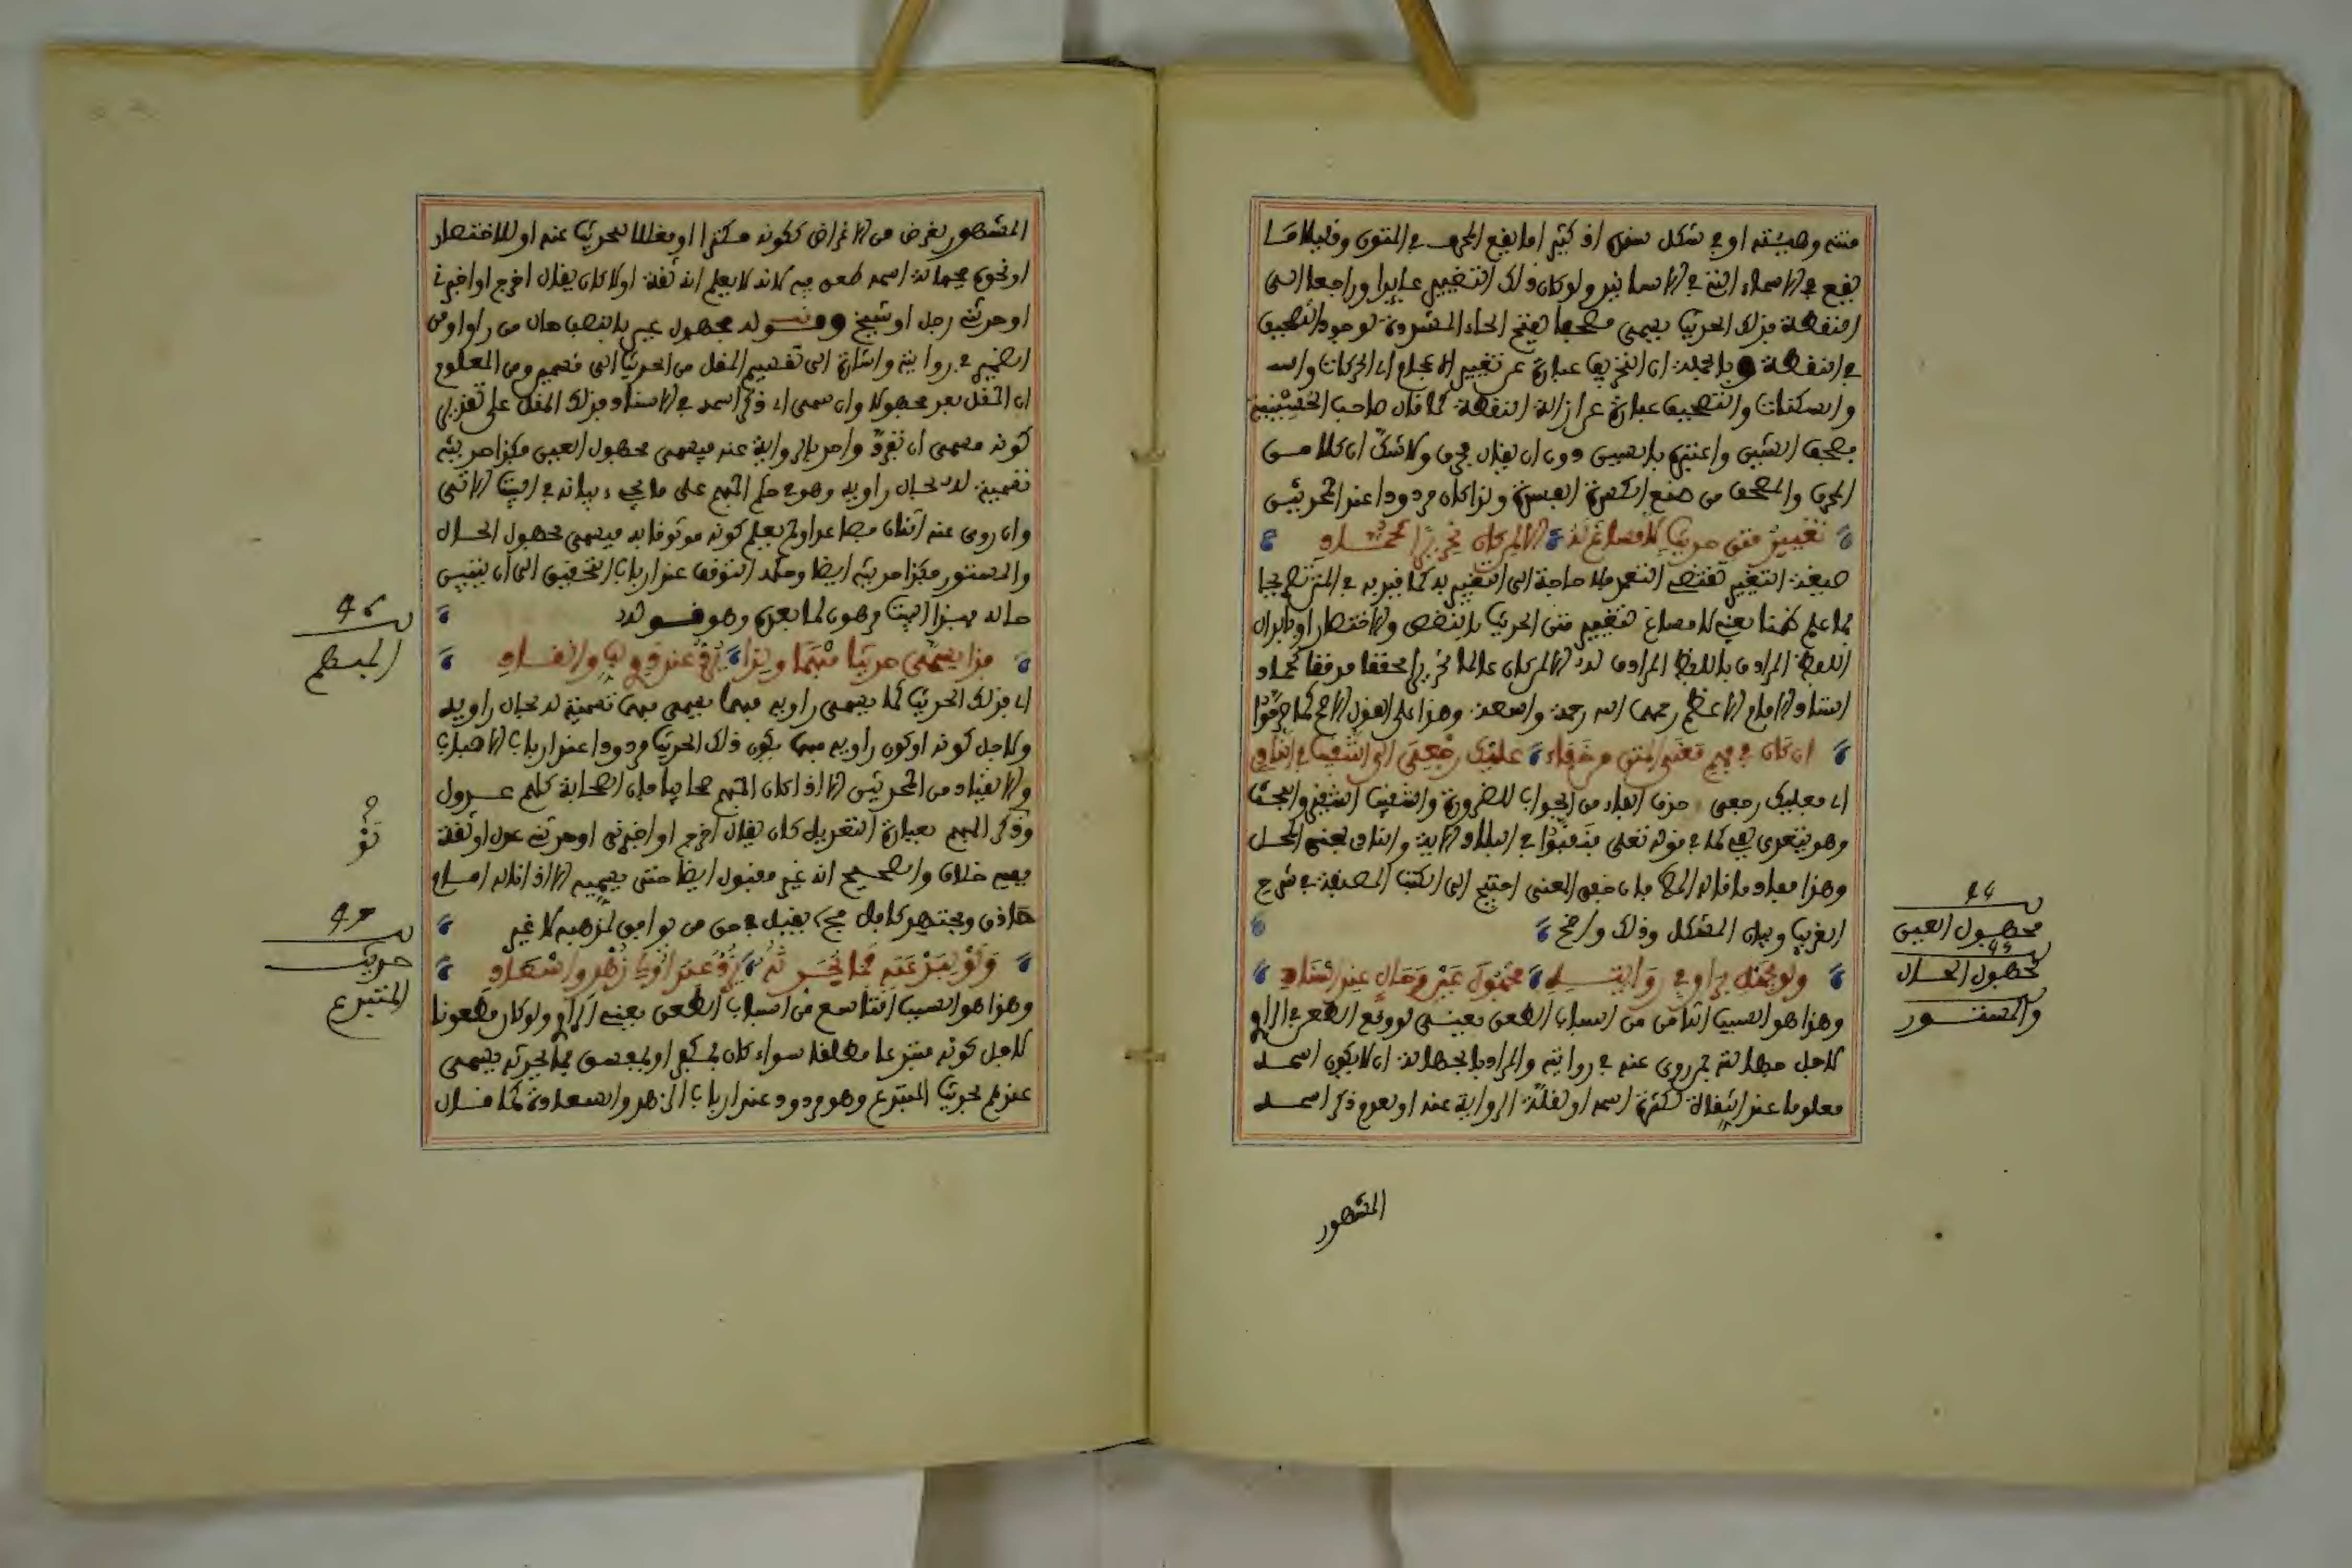 متنه وهيئته او في شكل سنده اذ كثيرا ما يقع المحرف في المتون وقليلا ما
يقع في الاسماء التي في الاسانيد ولو كان ذلك التغيير عايدا وراجعا الى
النقطة فذلك الحديث يسمى مصحفا بفتح الحاء المشددة لوجود التصحيف
في النقطة وبالجملة ان التحريف عبارة عن تغيير الاعجام اي الحركات
والسكنات والتصحيف عبارة عن ازالة النقطة كما قال صاحب
مصحف الشين واعتبره بالسين دون ان يقال محرف ولا شك ان كلا من
المحرف والمصحف من صنع الكفرة الفسقة ولذا كان مردودا عند المحدثين
تغيير متن حديث لا مساغ له الا لمن كان
صيغة التغيير تقتضي التعمد فلا حاجة الى التقييد به كما قيد به في
كما علم ضمنا يعني لا مساغ تغيير متن الحديث بالنقص والاختصار او بابدال
اللفظ المرادف باللفظ المرادف له الا لمن كان عالما محققا مدققا كحماد
استاد الامام الاعظم رحمهما الله رحمة واسعة وهذا على القول الاصح كما
ان كان في فهم معنى المتن من خفاء عليك رجعى الى التنقيب في
اي فعليك رجعى حذف الفاء من الجواب للضرورة والتنقيب التفتيش والبحث
وهو يتعدى بفي كما في قوله تعلى فنقبوا في البلاد الاية
وهذا مفاد ما قاله فان خفي المعنى احتيج الى الكتب المصنفة في شرح
الغريب وبيان المشكل وذلك واضح
ولو بجهل راو في روايته مجهول عين وحال عند استاد
وهذا هو السبب الثامن من اسباب الطعن يعني لو وقع الطعن في الراو
لاجل جهالته فيمن روى عنه في روايته والمراد بالجهالة ان لا يكون اسمه
معلوما عند النقلة لكثرة اسمه او لقلة الرواية عنه او لعدم ذكر اسمه
المشهور
44
مجهول العين
45
مجهول الحال
والمستور
المشهور لغرض من الاغراض ككونه مكثرا او مقلا للحديث عنه او للاختصار
او نحوه فجهالة اسمه طعن فيه لانه لا يعلم انه ثقة اولا كان يقال اخرج او اخبرني
او حدثني رجل او شيخ وقوله مجهول عين بالنصب حال من راو او من
الضمير في روايته واشارة الى تقسيم المقل من الحديث الى قسمين ومن المعلوم
ان المقل يعد مجهولا وان سمي اي ذكر اسمه في الاسناد فذلك المقل على تقدير
كونه مسمى ان تفرد واحد بالرواية عنه فيسمى مجهول العين فكذا حديثه
تسمية له بحال راويه وهو في حكم المبهم على ما يجيء بيانه في البيت الاتي
وان روى عنه اثنان فصاعدا ولم يعلم كونه موثوقا به فيسمى مجهول الحال
والمستور فكذا حديثه ايضا وحكمه التوقف عند ارباب التحقيق الى ان يتبين
حاله بهذا البيت مرهون لما بعده وهو قوله
فذا يسمى حديثا مبهما ولذا رد عند
اي فذلك الحديث كما يسمى راويه مبهما يسمى مبهما تسمية له بحال راويه
ولاجل كونه او كون راويه مبهما يكون ذلك الحديث مردودا عند ارباب
والانقياد من المحدثين الا اذا كان المبهم صحابيا فان الصحابة كلهم عدول
وذكر المبهم بعبارة التعديل كان يقال اخرج او اخبرني او حدثني عدل او ثقة
ففيه خلاف والصحيح انه غير مقبول ايضا حتى يسميه الا اذا قاله امام
حاذق ومجتهد كامل فحينئذ يقبل في حق من يوافق لمذهبه لا غير
ولو ببدعته رد عند زهد واسعاد
وهذا هو السبب التاسع من اسباب الطعن يعني الراو ولو كان مطعونا
لاجل كونه مبتدعا مطلقا سواء كان بمكفر او بمفسق فما يحدثه يسمى
عندهم بحديث المبتدع وهو مردود عند ارباب الزهد والسعادة كما قال
46
المبهم
47
حديث
المبتدع